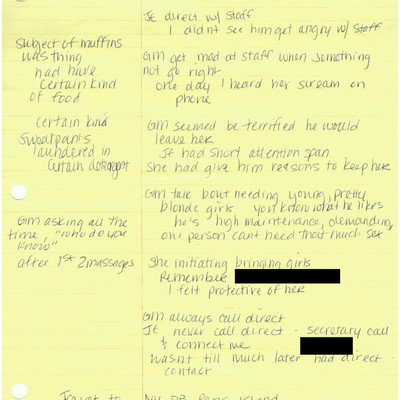 JE direct w/ staff
I didnt see him get angry w/ staff
subject of muffins
was thing
had have
certain kind
of food
GM get mad at staff when something
not go right
one day I heard her scream on
phone
certain kind
sweatpants
laundered in
certain detergent
GM seemed be terrified he would
leave her
JE had short attention span
she had give him reasons to keep her
GM talk bout needing young, pretty
blonde girls you know what he likes
he's high maintenance, demanding
one person cant need that much sex
GM asking all the
time, "who do you
know"
after 1st 2 massages
she initiating bringing girls
Remember
I felt protective of her
GM always call direct
JE never call direct - secretary call
& connect me
wasnt till much later had direct
contact
Travel to
NM PB Paris Island